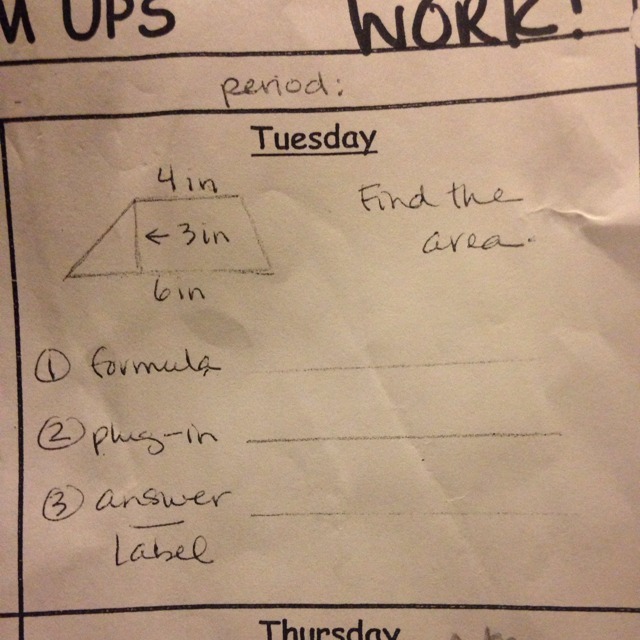 M UPS WORK!
period:
Tuesday
4 in
Find the
area.
← 3in
6 in
① formula
② plug-in
③ answer
Label
Thursday